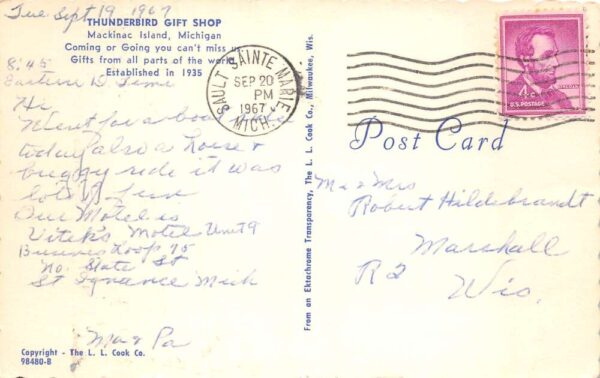 Tue Sept 19 1967
THUNDERBIRD GIFT SHOP
Mackinac Island, Michigan
Coming or Going you can't miss us
Gifts from all parts of the world
Established in 1935
8:45
Eastern D Time
Hi
Went for a boat
today also a horse &
buggy ride it was
lots of fun
Our Motel is
Vitek's Motel Unit 9
Business Loop 75
No. State St
St Ignance Mich
Ma & Pa
Copyright - The L. L. Cook Co.
98480-B
From an Ektachrome Transparency, The L. L. Cook Co., Milwaukee, Wis.
SAULT SAINTE MARIE
SEP 20
PM
1967
MICH.
LINCOLN
4¢
U.S. POSTAGE
Post Card
Mr & Mrs
Robert Hildebrandt
Marshall
R2
Wis.